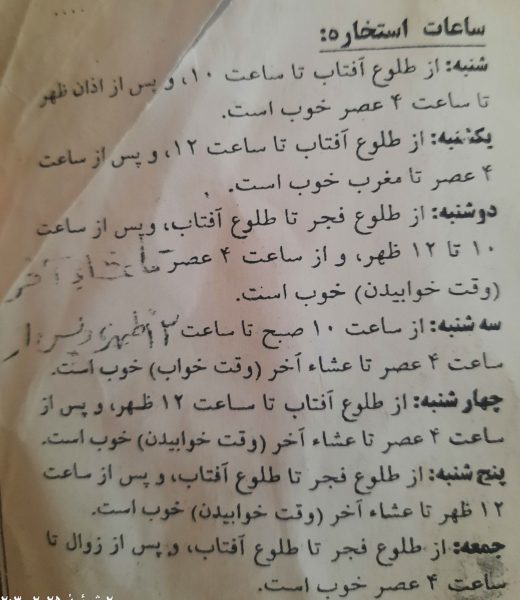 ساعات استخاره:
شنبه: از طلوع آفتاب تا ساعت ۱۰، و پس از اذان ظهر
تا ساعت ۴ عصر خوب است.
یکشنبه: از طلوع آفتاب تا ساعت ۱۲، و پس از ساعت
۴ عصر تا مغرب خوب است.
دوشنبه: از طلوع فجر تا طلوع آفتاب، وپس از ساعت
۱۰ تا ۱۲ ظهر، و از ساعت ۴ عصر تا عشاء آخر
(وقت خوابیدن) خوب است.
سه شنبه: از ساعت ۱۰ صبح تا ساعت ۱۲ ظهر و پس از
ساعت ۴ عصر تا عشاء آخر (وقت خواب) خوب است.
چهارشنبه: از طلوع آفتاب تا ساعت ۱۲ ظهر، و پس از
ساعت ۴ عصر تا عشاء آخر (وقت خوابیدن) خوب است.
پنج شنبه: از طلوع فجر تا طلوع آفتاب، و پس از ساعت
۱۲ ظهر تا عشاء آخر (وقت خوابیدن) خوب است.
جمعه: از طلوع فجر تا طلوع آفتاب، و پس از زوال تا
ساعت ۴ عصر خوب است.